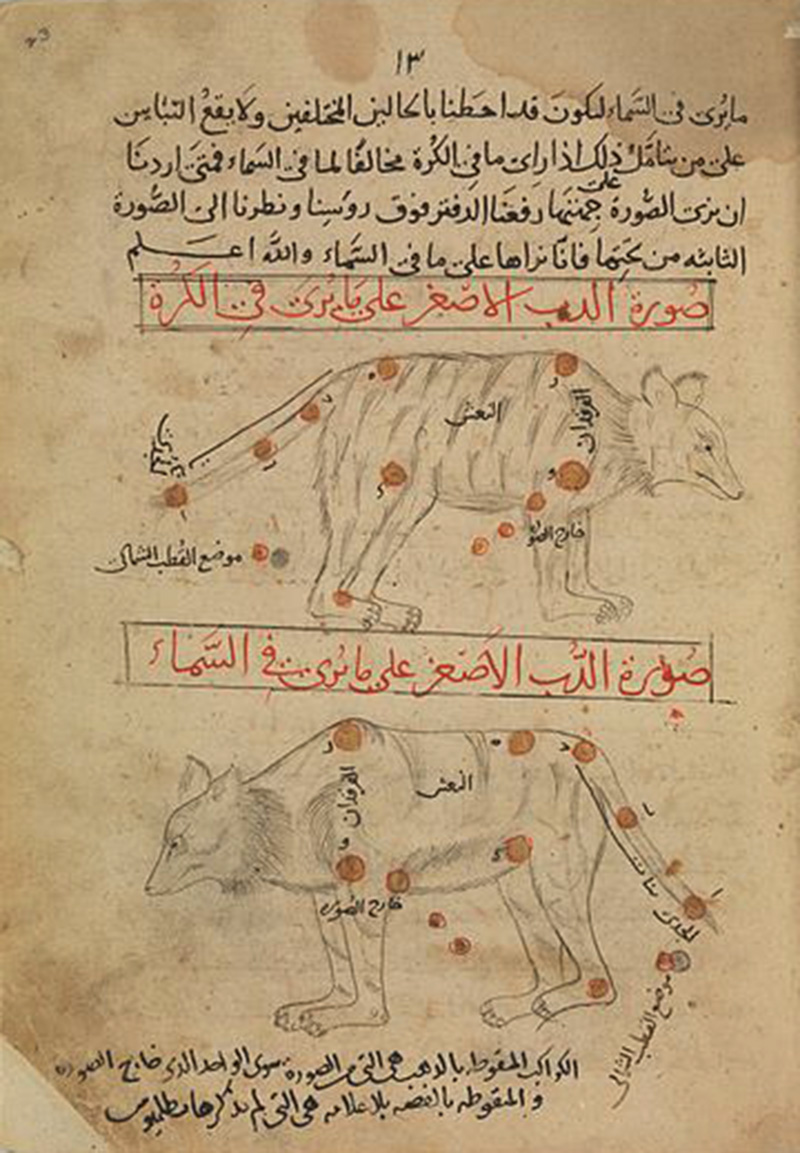 ١٣
ما يُرى في السَّماء لتكونَ قد احَطنا بالحالين المختلفين ولا يقعُ التباس
على من يتامَّل ذلك اذا راى ما في الكُرة مخالفًا لما في السَماء فمتى اردنَا
ان نرى الصُورة على جهتها رفعَنا الدفتر فوق روسِنا ونظرنا الى الصُّورة
الثانيه من تحتِها فانّا نراها على ما في السَّماء والله اعلم
صُورة الدب الاصْغر على مَا يُرىَ في الكُرة
النعش
الفرقدان
خارج الصُورة
موضع القُطب الشمالى
صُورة الدُّب الاَصغر على ما يُرى في السَّماء
النعش
الفرقدان
خارج الصُوره
الجدى
موضع القطب الشمالى
الكواكب المنقوطه بالذهب هى التى من الصورة سوى الواحد الذى خارج الصوره
و المنقوطه بالفضه بلا علامه هى التى لم يذكرها بطلميوس